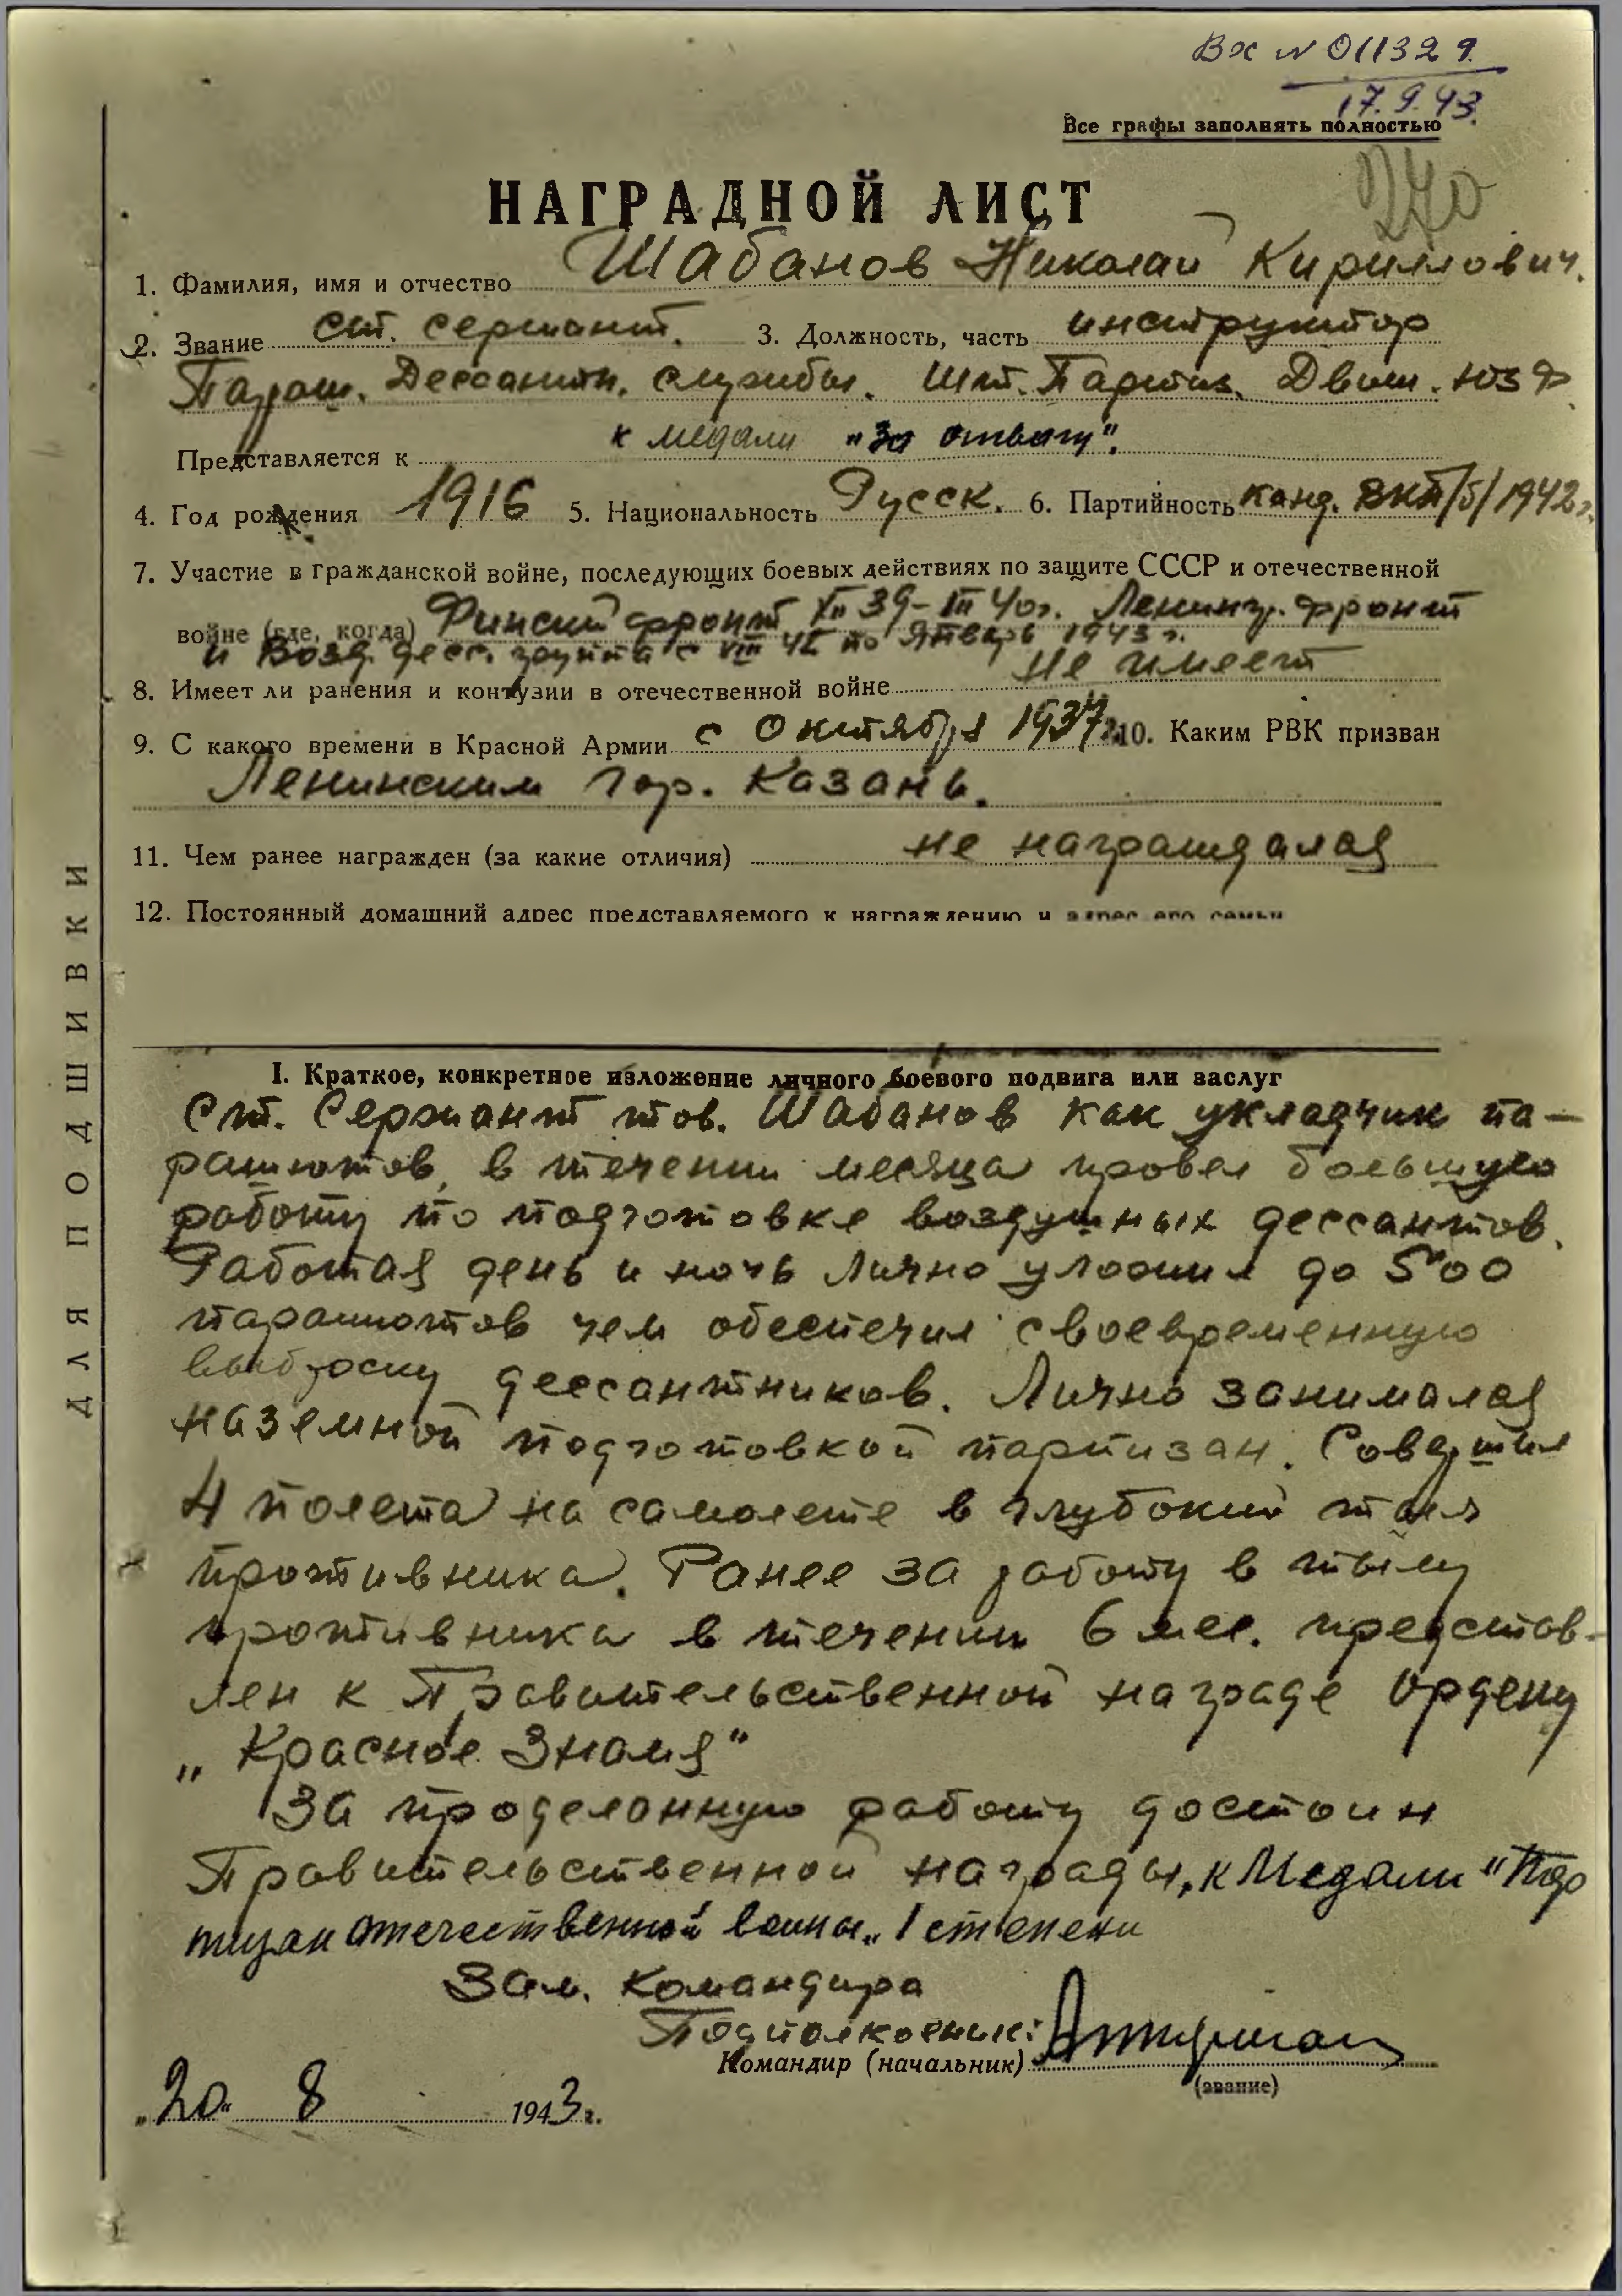 Вх N 011329
17.9.43.
Все графы заполнять полностью
270
НАГРАДНОЙ ЛИСТ
1. Фамилия, имя и отчество Шабанов Николай Кириллович.
2. Звание ст. сержант. 3. Должность, часть инструктор
Параш. Дессантн. службы. Шт. Партиз. Движ. ЮЗФ.
Представляется к к медали "За отвагу".
4. Год рождения 1916 5. Национальность Русск. 6. Партийность канд. ВКП/б/ 1942 г.
7. Участие в гражданской войне, последующих боевых действиях по защите СССР и отечественной
войне (где, когда) Финский фронт XII 39 - III 40 г. Ленингр. фронт
и Возд. десс. группа с VIII 42 по Январь 1943 г.
8. Имеет ли ранения и контузии в отечественной войне не имеет
9. С какого времени в Красной Армии с Октября 1937 г. 10. Каким РВК призван
Ленинским гор. Казань.
11. Чем ранее награжден (за какие отличия) не награждался
12. Постоянный домашний адрес представляемого к награждению и адрес его семьи
ДЛЯ ПОДШИВКИ
I. Краткое, конкретное изложение личного боевого подвига или заслуг
Ст. Сержант тов. Шабанов как укладчик па-
рашютов, в течении месяца провел большую
работу по подготовке воздушных дессантов.
Работая день и ночь Лично уложил до 500
парашютов чем обеспечил своевременную
выброску дессантников. Лично занимался
наземной подготовкой партизан. Совершил
4 полета на самолете в глубокий тыл
противника. Ранее за работу в тылу
противника в течении 6 мес. представ-
лен к Правительственной награде Ордену
„Красное Знамя"
За проделанную работу достоин
Правительственной награды, к Медали "Пар
тизан отечественной войны„ 1 степени
Зам. Командира
Подполковник:
Командир (начальник)
(звание)
„20" 8 1943 г.